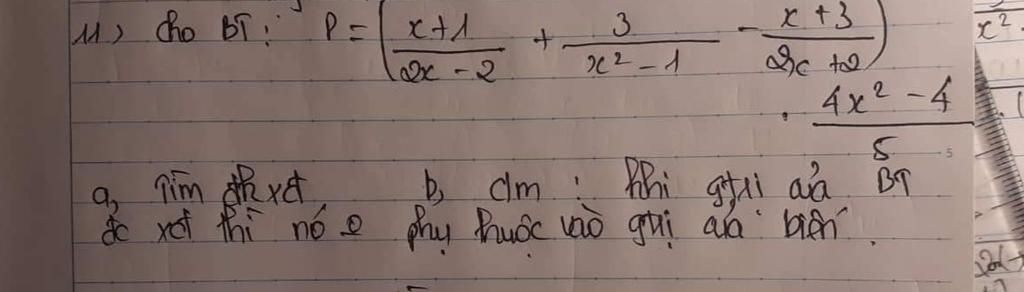 11) Cho BT: P = ( \frac{x+1}{2x-2} + \frac{3}{x^2-1} - \frac{x+3}{2x+2} )
. \frac{4x^2-4}{5}
a, Tìm đk xđ b, CM: khi gtrị của BT
đc xđ thì nó o phụ thuộc vào gtrị của biến.